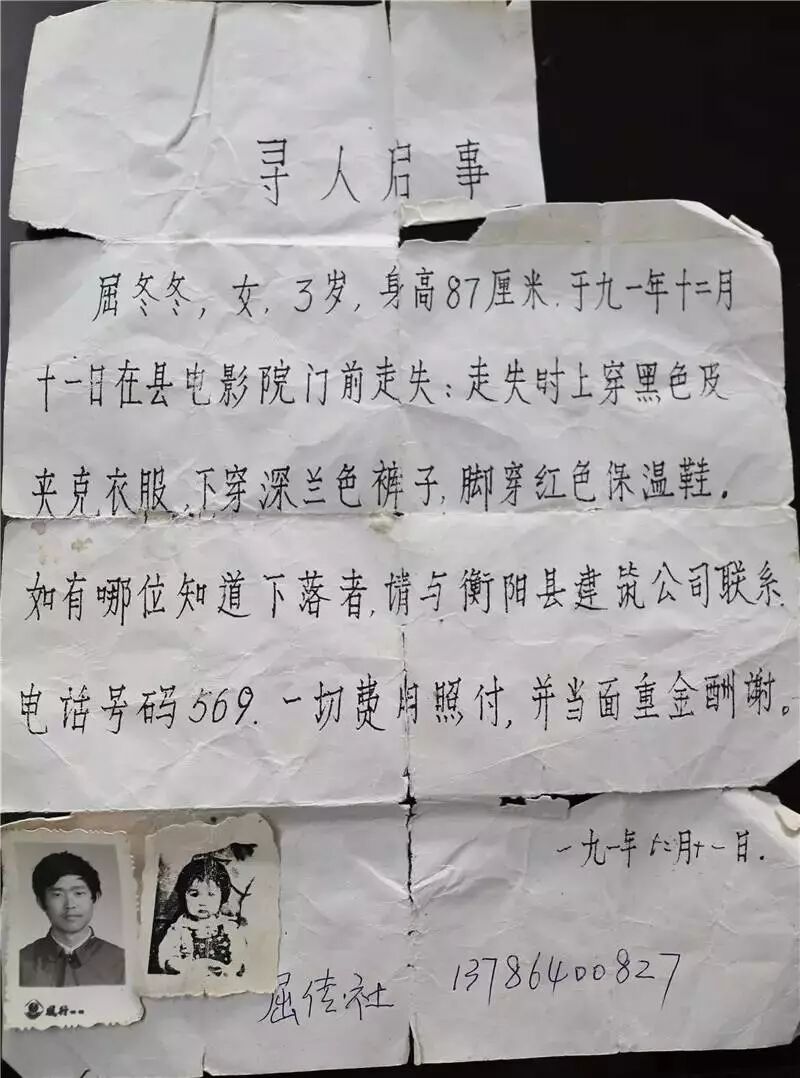 寻人启事
屈冬冬，女，3岁，身高87厘米，于九一年十二月
十一日在县电影院门前走失：走失时上穿黑色及
夹克衣服，下穿深兰色裤子，脚穿红色保温鞋。
如有哪位知道下落者，请与衡阳县建筑公司联系，
电话号码569．一切费用照付，并当面重金酬谢。
一九一年十二月十一日．
屈佳社 13786400827